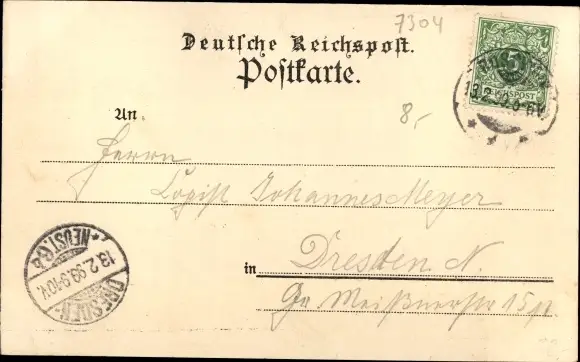 7304
Deutsche Reichspost.
Postkarte.
5
REICHSPOST
13.2.99. 8-9V.
8,-
An
Herrn
Logist Johannes Meyer
in Dresden N.
Gr. Meißnerstr 15 p.
NEUST. 6a
13.2.99.9-10V.
DRESDEN